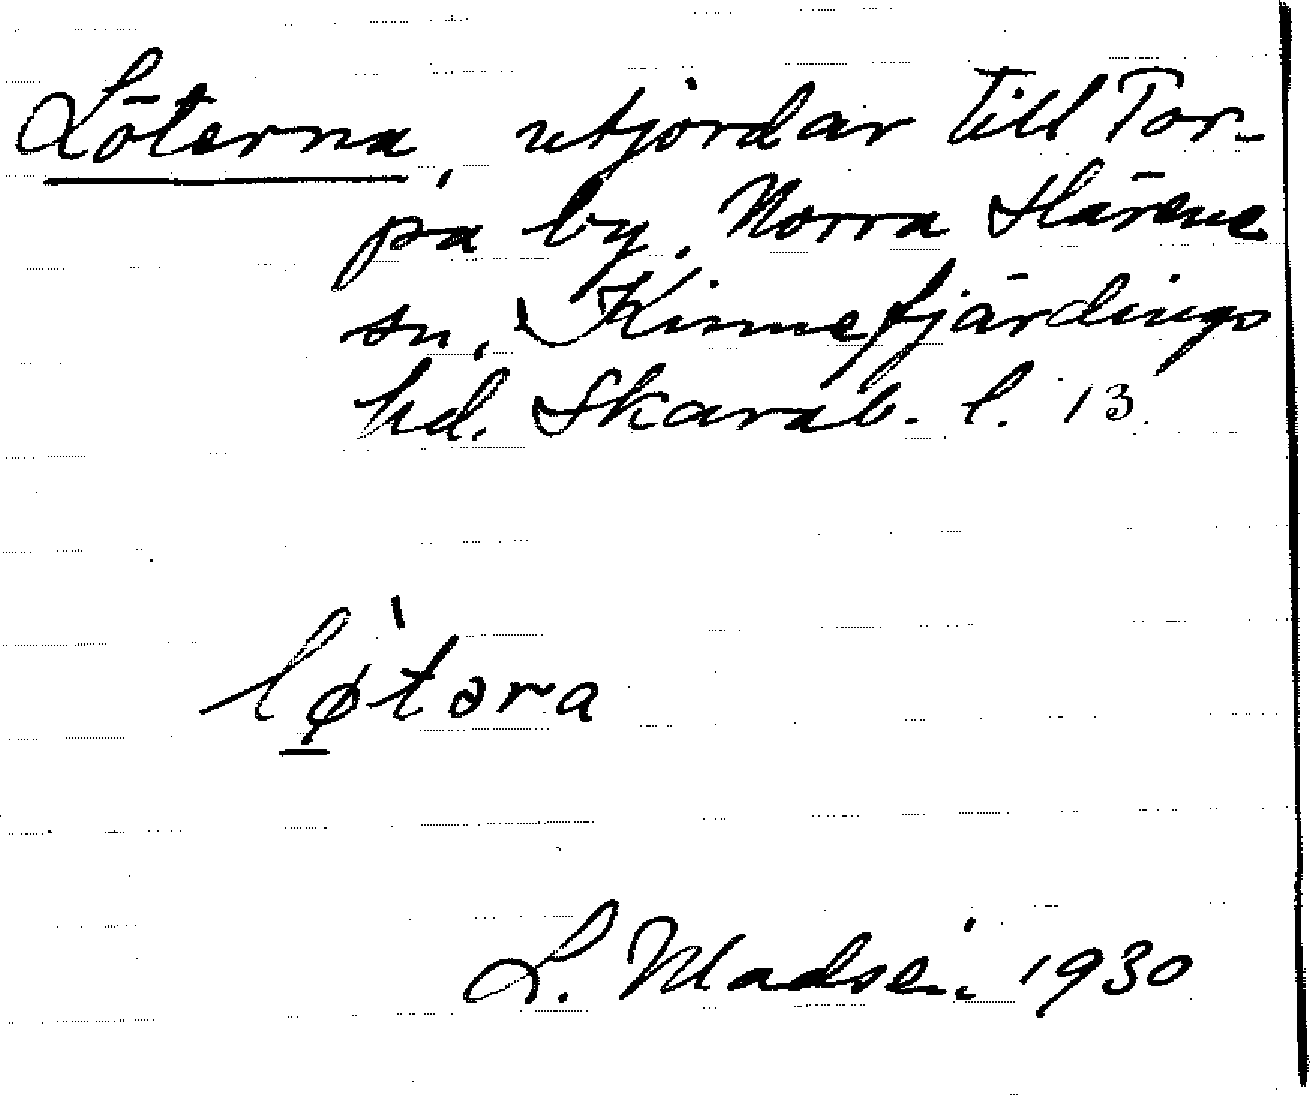 Löterna, utjordar till Tor-
pa by, Norra Härene
sn, Kinnefjärdings
hd. Skarab. l. 13.
lø̀təra
L. Madsén 1930